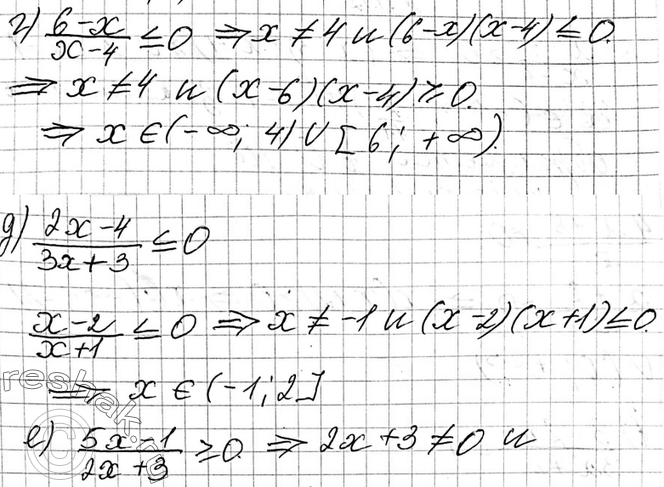 г) (6-x)/(x-4) ≤ 0 ⇒ x ≠ 4 и (6-x)(x-4) ≤ 0.
⇒ x ≠ 4 и (x-6)(x-4) ≥ 0.
⇒ x ∈ (-∞; 4) ∪ [6; +∞).
д) (2x-4)/(3x+3) ≤ 0
(x-2)/(x+1) ≤ 0 ⇒ x ≠ -1 и (x-2)(x+1) ≤ 0.
⇒ x ∈ (-1; 2]
е) (5x-1)/(2x+3) ≥ 0. ⇒ 2x+3 ≠ 0 и
reshak.ru